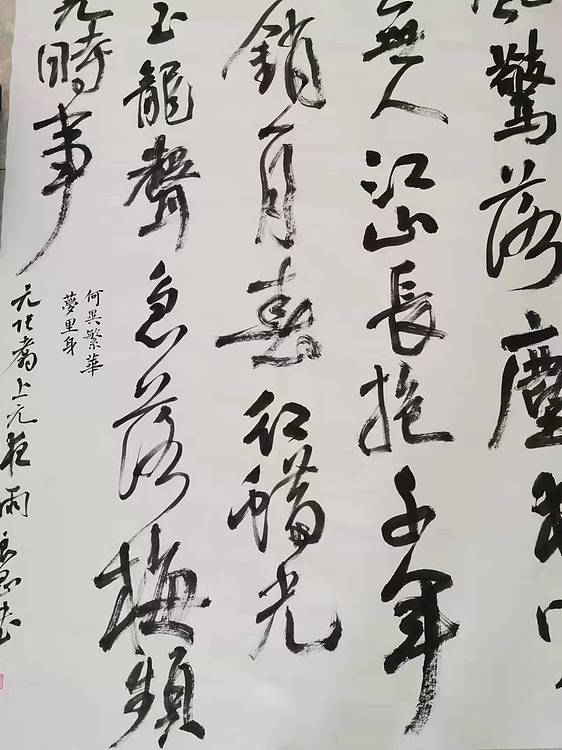 驚落塵
無人江山長抱千年
銷春紅蠟光
玉龍聲急落梅頻
時事
何異繁華
夢里身
元上元夜雨